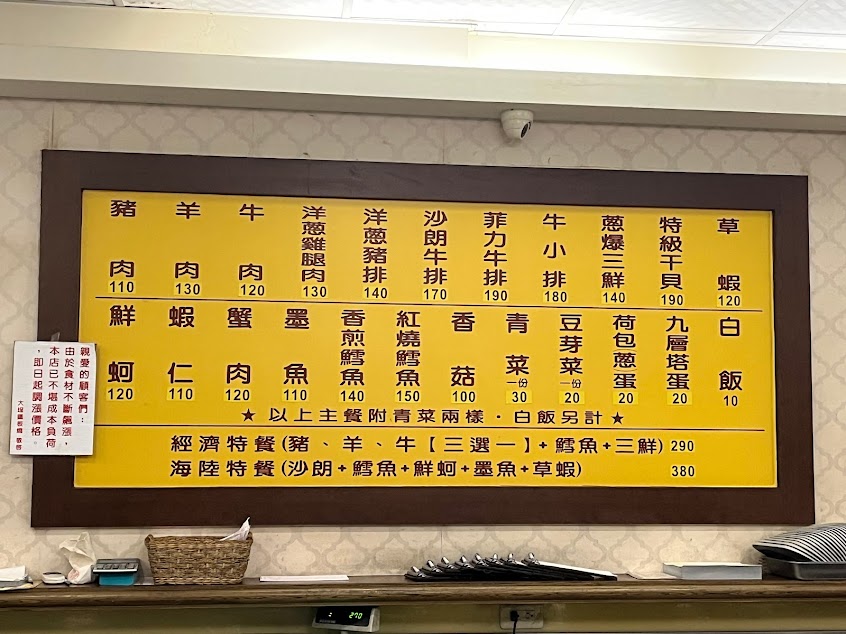 豬肉 110
羊肉 130
牛肉 120
洋蔥雞腿肉 130
洋蔥豬排 140
沙朗牛排 170
菲力牛排 190
牛小排 180
蔥爆三鮮 140
特級干貝 190
草蝦 120
鮮蚵 120
蝦仁 110
蟹肉 120
墨魚 110
香煎鱈魚 140
紅燒鱈魚 150
香菇 100
青菜 一份 30
豆芽菜 一份 20
荷包蔥蛋 20
九層塔蛋 20
白飯 10
★以上主餐附青菜兩樣·白飯另計★
經濟特餐(豬、羊、牛【三選一】+鱈魚+三鮮) 290
海陸特餐(沙朗+鱈魚+鮮蚵+墨魚+草蝦) 380
親愛的顧客們：
由於食材不斷飆漲，
本店已不堪成本負荷
，即日起調漲價格。
270